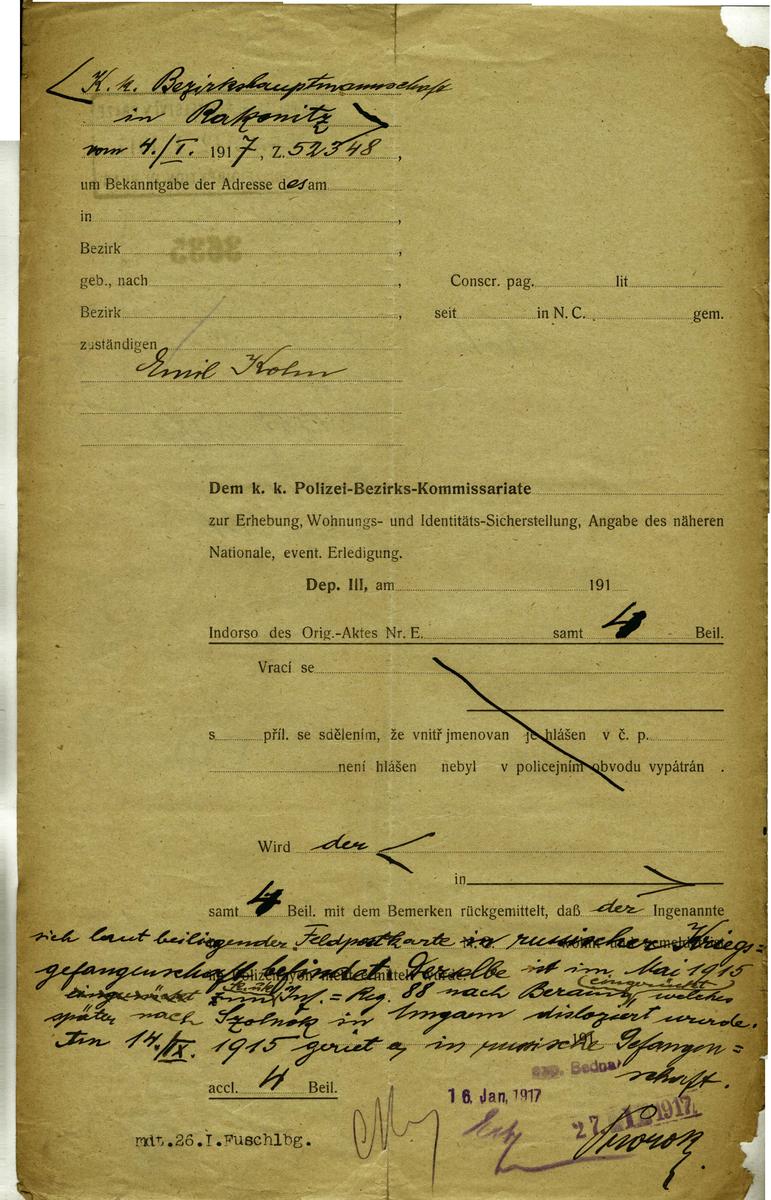 K. k. Bezirkshauptmannschaft
in Rakonitz
vom 4./I. 1917, Z. 52348,
um Bekanntgabe der Adresse des am
in ,
Bezirk ,
geb., nach , Conscr. pag. lit
Bezirk , seit in N. C. gem.
zuständigen
Emil Kohn
Dem k. k. Polizei-Bezirks-Kommissariate
zur Erhebung, Wohnungs- und Identitäts-Sicherstellung, Angabe des näheren
Nationale, event. Erledigung.
Dep. III, am 191
Indorso des Orig.-Aktes Nr. E. samt 4 Beil.
Vrací se
s příl. se sdělením, že vnitř jmenovan je hlášen v č. p.
není hlášen nebyl v policejním obvodu vypátrán .
Wird der
in
samt 4 Beil. mit dem Bemerken rückgemittelt, daß der Ingenannte
sich laut beiliegender Feldpostkarte in russischer Kriegs-
gefangenschaft befindet. Derselbe ist im Mai 1915
eingerückt zum Inf.=Reg. 88 nach Beraun, welches
eingerückt
später nach Szolnok in Ungarn disloziert wurde.
Am 14./IX. 1915 geriet er in russische Gefangen=
schaft.
accl. 4 Beil.
exp. Bednář
16. Jan. 1917
27. 1917
mdt.26.I.Fuschlbg.